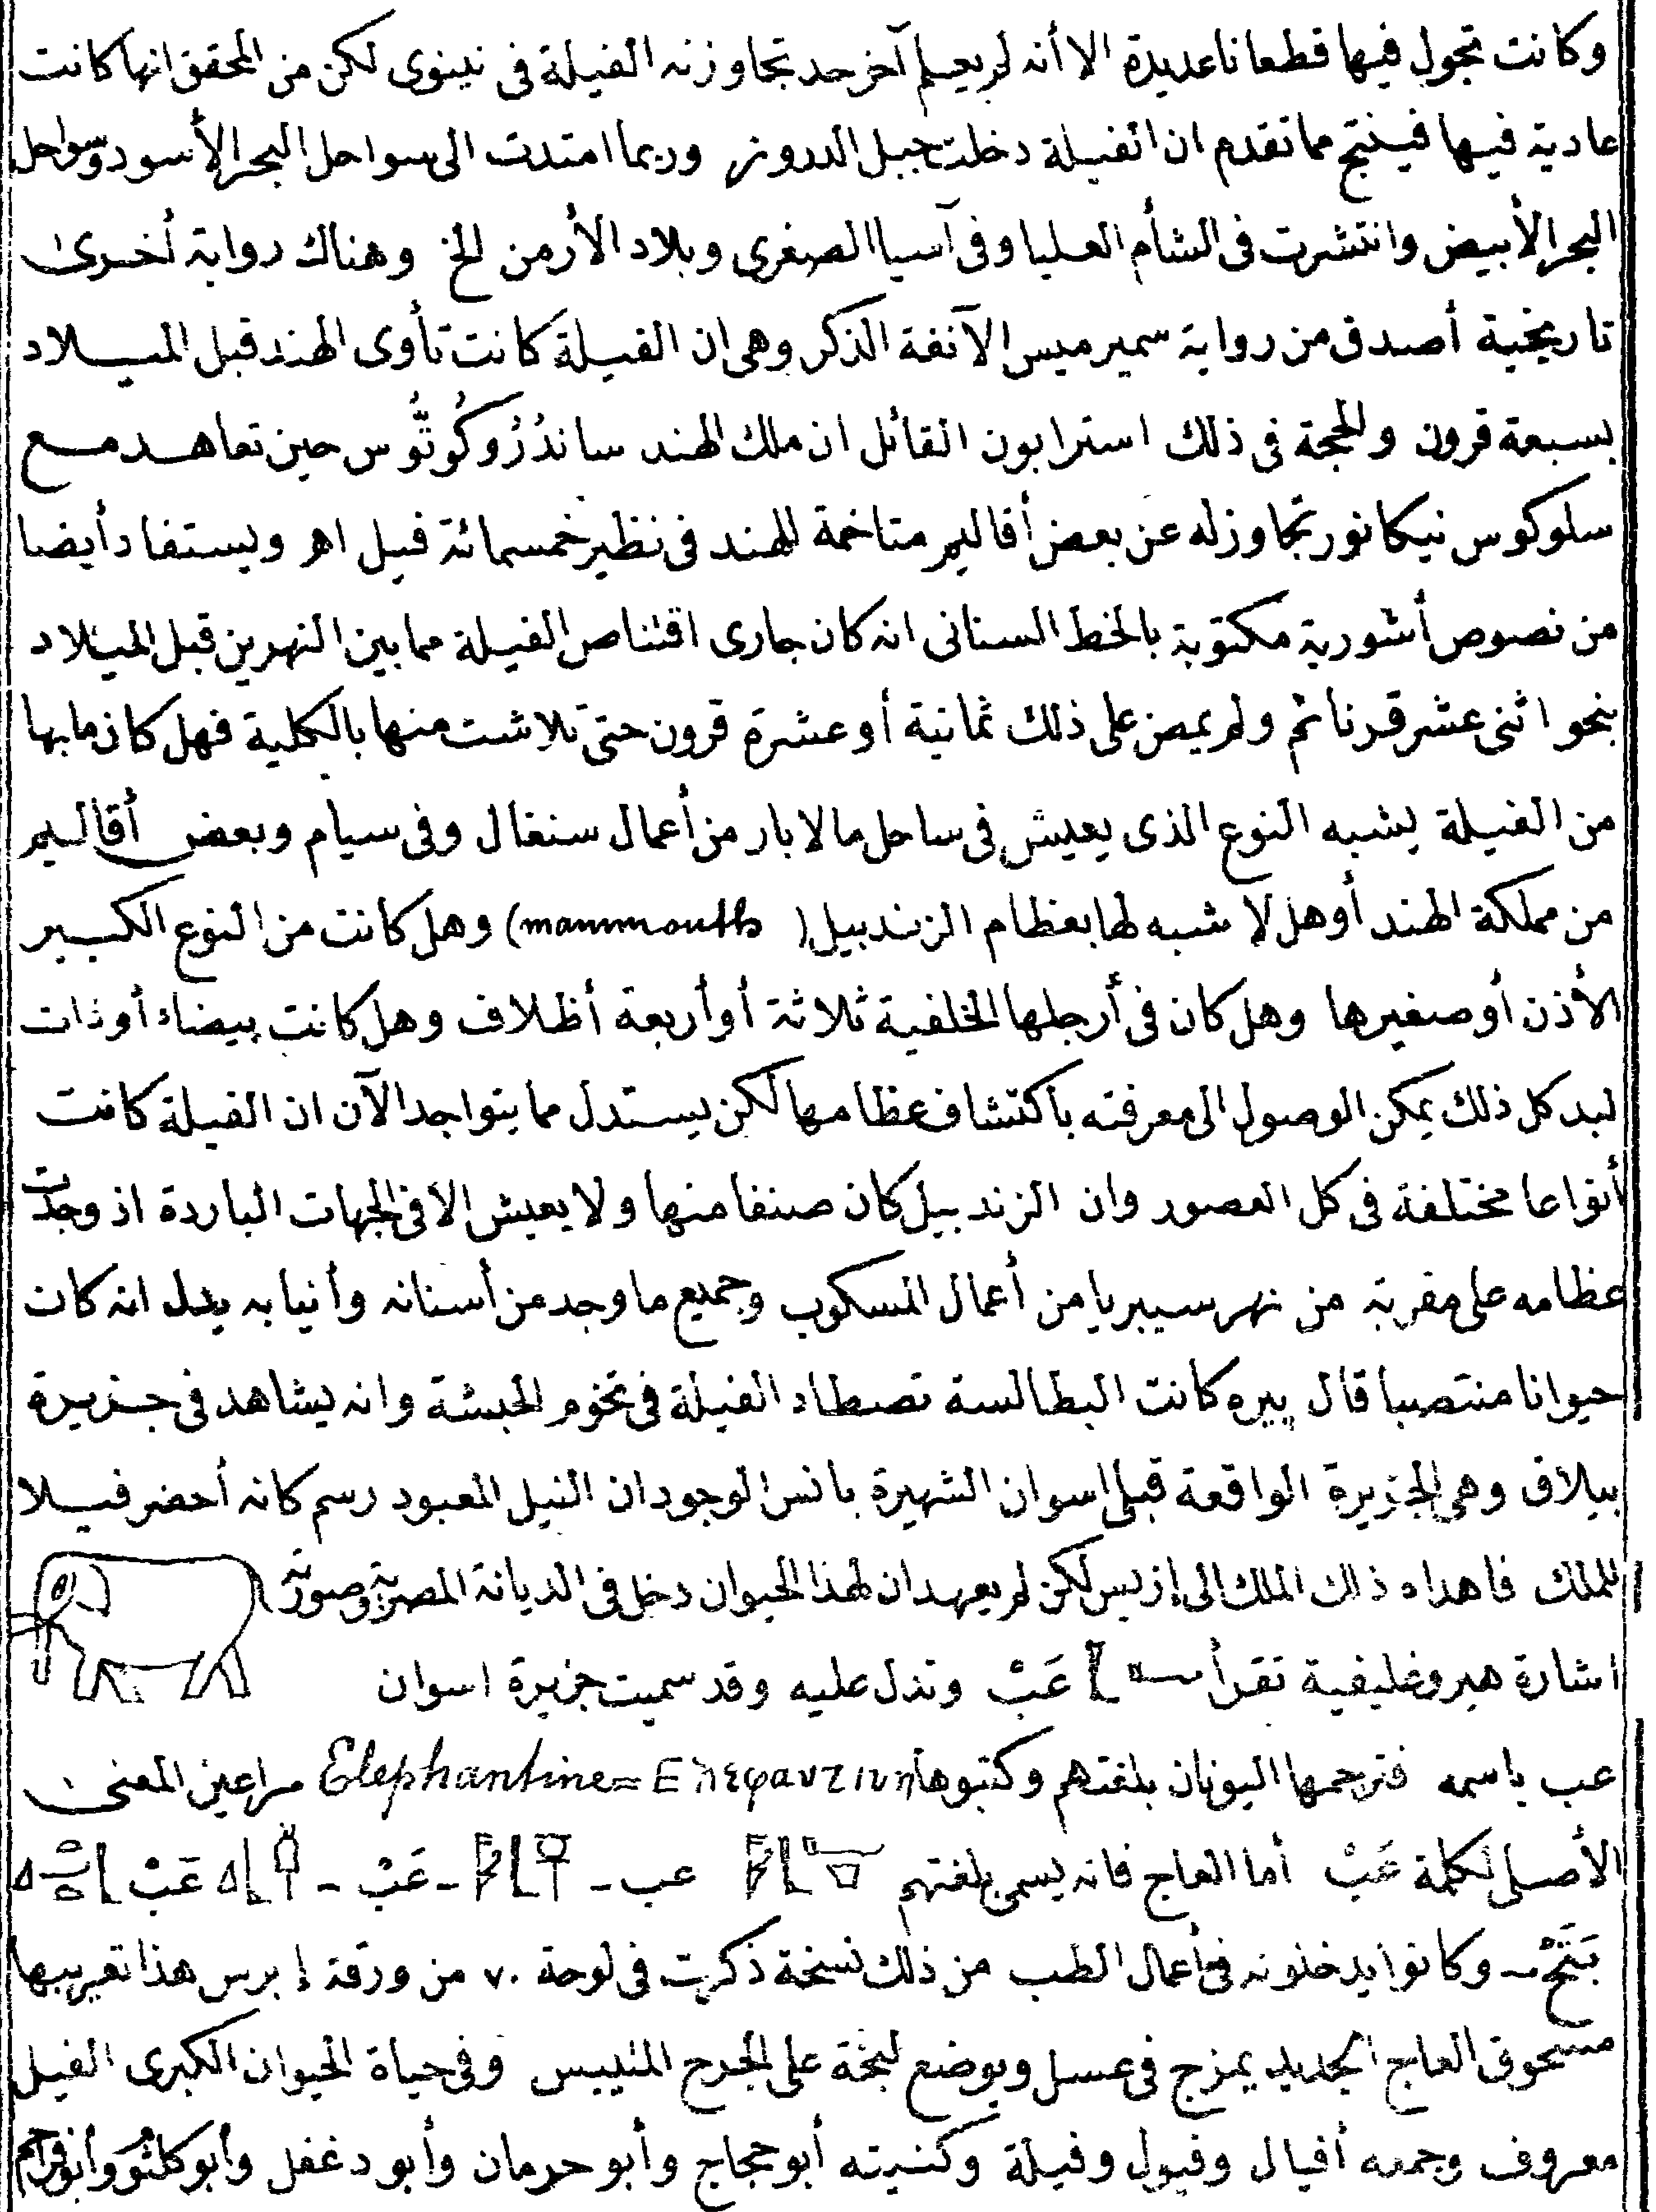 وكانت تجول فيها قطعانا عديدة الا أنه لم يعلم آخر حد تجاوزنه الفيلة فى نينوى لكن من المحقق انها كانت
عادية فيها فينتج مما تقدم ان الفيلة دخلت جبل الدروز وربما امتدت الى سواحل البحر الأسود وسواحل
البحر الأبيض وانتشرت فى الشأم العليا وفى آسيا الصغرى وبلاد الأرمن الخ وهناك رواية أخرى
تاريخية أصدق من رواية سميرميس الآنفة الذكر وهى ان الفيلة كانت تأوى الهند قبل الميلاد
بسبعة قرون والحجة فى ذلك استرابون القائل ان ملك الهند ساندُرُوكُوتُّوس حين تعاهد مع
سلوكوس نيكانور تجاوز له عن بعض أقاليم متاخمة للهند فى نظير خمسمائة فيل اهر ويستفاد أيضا
من نصوص أشورية مكتوبة بالخط السنانى انه كان جارى اقتناص الفيلة مما بين النهرين قبل الميلاد
بنحو اثنى عشر قرنا ثم ولم يمض على ذلك ثمانية أو عشرة قرون حتى تلاشت منها بالكلية فهل كان ما بها
من الفيلة يشبه النوع الذى يعيش فى ساحل مالابار من أعمال سنغال وفى سيام وبعض أقاليم
من مملكة الهند أوهل لا شبه لها بعظام الزندبيل (mammouth) وهل كانت من النوع الكبير
الأذن أو صغيرها وهل كان فى أرجلها الخلفية ثلاثة أو أربعة أظلاف وهل كانت بيضاء أو ذات
لبد كل ذلك يمكن الوصول الى معرفته باكتشاف عظامها لكن يستدل مما يتواجد الآن ان الفيلة كانت
أنواعا مختلفة فى كل العصور وان الزندبيل كان صنفا منها ولا يعيش الا فى الجهات الباردة اذ وجدت
عظامه على مقربة من نهر سيبريا من أعمال المسكوب وجميع ما وجد من أسنانه وأنيابه يدل انه كان
حيوانا منتصبا قال پيره كانت البطالسة تصطاد الفيلة فى تخوم الحبشة وانه يشاهد فى جزيرة
بيلاق وهى الجزيرة الواقعة قبلى اسوان الشهيرة بانس الوجود ان النيل المعبود رسم كانه أحضر فيلا
للملك فاهداه ذلك الملك الى إزيس لكن لم يعهد ان لهذا الحيوان دخل فى الديانة المصرية وصورته
اشارة هيروغليفية تقرأ عَبْ وتدل عليه وقد سميت جزيرة اسوان
عب باسمه فترجمها اليونان بلغتهم وكتبوها Elephantine = Ελεφαντινη مراعين المعنى
الأصلى لكلمة عَبْ أما العاج فانه يسمى بلغتهم عب - عَبْ - عَبْ
بَتَخْ - وكانوا يدخلونه فى أعمال الطب من ذلك نسخة ذكرت فى لوحة ٧٠ من ورقة إبرس هذا تعريبها
مسحوق العاج الجديد يمزج فى عسل ويوضع لبخة على الجرح المتيبس وفى حياة الحيوان الكبرى الفيل
معروف وجمعه أفيال وفيول وفيلة وكنيته أبو حجاج وأبو حرمان وأبو دغفل وأبو كلثوم وأبو مزاحم